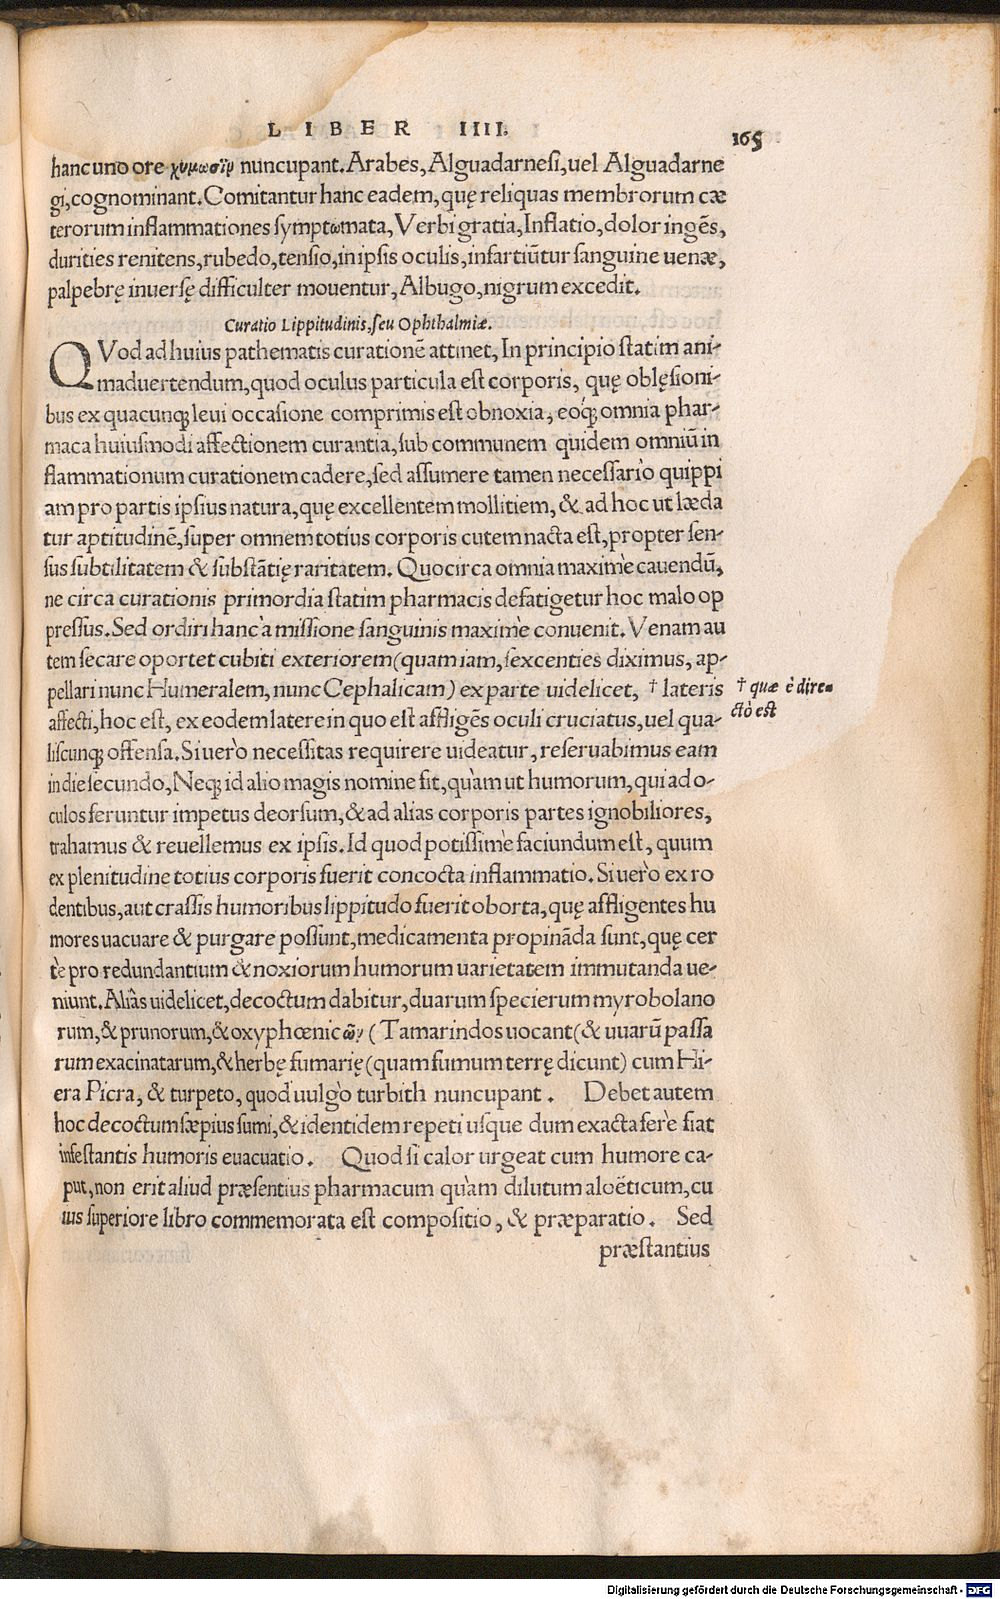 LIBER IIII.
165
hanc uno ore χυμωσϊν nuncupant. Arabes, Alguadarnesi, uel Alguadarne
gi, cognominant. Comitantur hanc eadem, quę reliquas membrorum cæ
terorum inflammationes symptωmata, Verbi gratia, Inflatio, dolor ingēs,
durities renitens, rubedo, tensio, in ipsis oculis, infartiūtur sanguine uenæ,
palpebrę inuersę difficulter mouentur, Albugo, nigrum excedit.
Curatio Lippitudinis, seu Ophthalmiæ.
QVod ad huius pathematis curationē attinet, In principio statim ani-
maduertendum, quod oculus particula est corporis, quę oblęsioni-
bus ex quacunq; leui occasione comprimis est obnoxia, eoq́; omnia phar-
maca huiusmodi affectionem curantia, sub communem quidem omniū in
flammationum curationem cadere, sed assumere tamen necessariò quippi
am pro partis ipsius natura, quę excellentem mollitiem, & ad hoc ut læda
tur aptitudinē, super omnem totius corporis cutem nacta est, propter sen-
sus subtilitatem & substātię raritatem. Quocirca omnia maximè cauendū,
ne circa curationis primordia statim pharmacis defatigetur hoc malo op
pressus. Sed ordiri hanc à missione sanguinis maximè conuenit. Venam au
tem secare oportet cubiti exteriorem (quam iam, sexcenties diximus, ap-
pellari nunc Humeralem, nunc Cephalicam) ex parte uidelicet, † lateris
† quæ è dire-
ctò est
affecti, hoc est, ex eodem latere in quo est affligēs oculi cruciatus, uel qua-
liscunq; offensa. Si uerò necessitas requirere uideatur, reseruabimus eam
in die secundo, Neq; id alio magis nomine fit, quàm ut humorum, qui ad o-
culos feruntur impetus deorsum, & ad alias corporis partes ignobiliores,
trahamus & reuellemus ex ipsis. Id quod potissimè faciundum est, quum
ex plenitudine totius corporis fuerit concocta inflammatio. Si uerò ex ro
dentibus, aut crassis humoribus lippitudo fuerit oborta, quę affligentes hu
mores uacuare & purgare possunt, medicamenta propināda sunt, quę cer
tè pro redundantium & noxiorum humorum uarietatem immutanda ue-
niunt. Aliâs uidelicet, decoctum dabitur, duarum specierum myrobolano
rum, & prunorum, & oxyphœnicῶν (Tamarindos uocant( & uuarū passa
rum exacinatarum, & herbę fumarię (quam fumum terrę dicunt) cum Hi-
era Picra, & turpeto, quod uulgò turbith nuncupant. Debet autem
hoc decoctum sæpius sumi, & identidem repeti usque dum exacta ferè fiat
infestantis humoris euacuatio. Quod si calor urgeat cum humore ca-
put, non erit aliud præsentius pharmacum quàm dilutum aloëticum, cu
ius superiore libro commemorata est compositio, & præparatio. Sed
præstantius
Digitalisierung gefördert durch die Deutsche Forschungsgemeinschaft - DFG